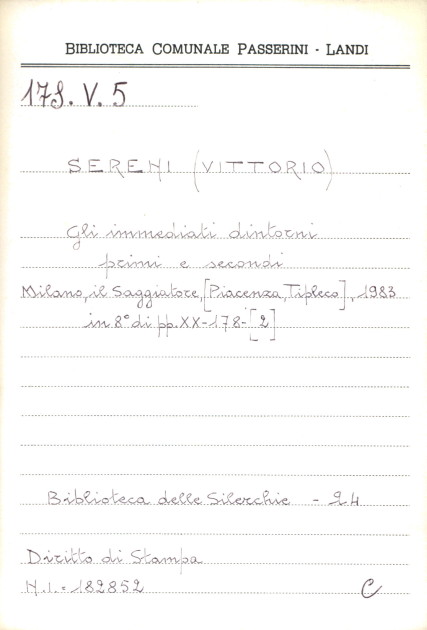 BIBLIOTECA COMUNALE PASSERINI - LANDI
17S. V. 5
SERENI (VITTORIO)
Gli immediati dintorni
primi e secondi
Milano, il Saggiatore, [Piacenza, Tipleco], 1983
in 8° di pp. XX-178-[2]
Biblioteca delle Silerchie - 24
Diritto di Stampa
N.I. = 182852
C